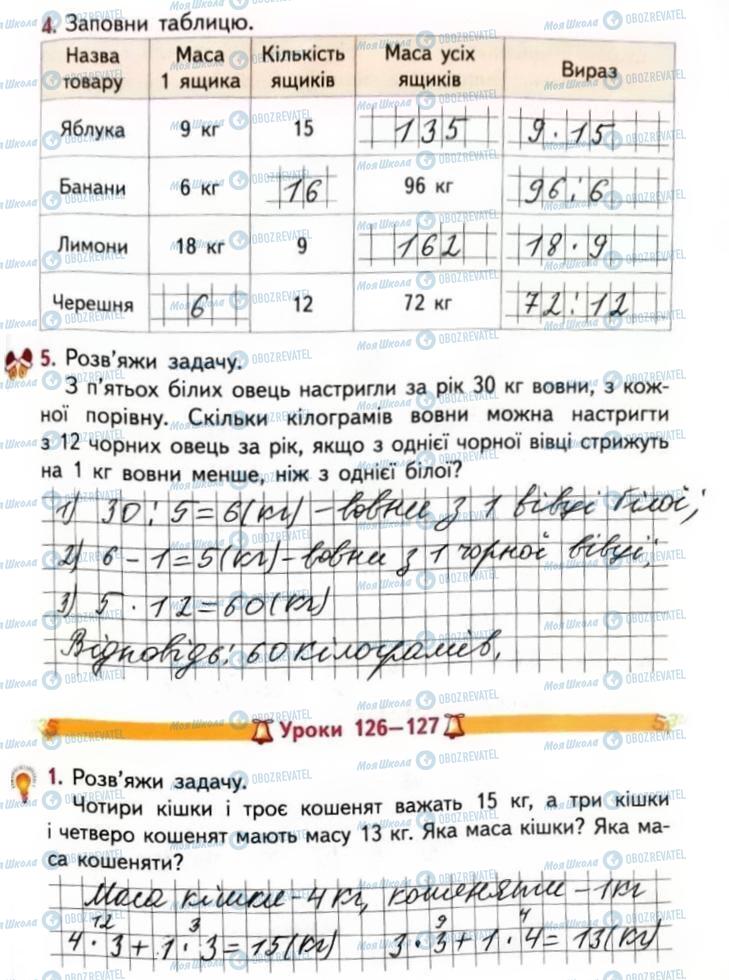 4. Заповни таблицю.
Назва товару | Маса 1 ящика | Кількість ящиків | Маса усіх ящиків | Вираз
Яблука | 9 кг | 15 | 135 | 9·15
Банани | 6 кг | 16 | 96 кг | 96:6
Лимони | 18 кг | 9 | 162 | 18·9
Черешня | 6 | 12 | 72 кг | 72:12
5. Розв’яжи задачу.
З п’ятьох білих овець настригли за рік 30 кг вовни, з кож-
ної порівну. Скільки кілограмів вовни можна настригти
з 12 чорних овець за рік, якщо з однієї чорної вівці стрижуть
на 1 кг вовни менше, ніж з однієї білої?
1) 30:5=6(кг)–вовни з 1 вівці білої;
2) 6–1=5(кг)–вовни з 1 чорної вівці;
3) 5·12=60(кг)
Відповідь: 60 кілограмів.
Уроки 126–127
1. Розв’яжи задачу.
Чотири кішки і троє кошенят важать 15 кг, а три кішки
і четверо кошенят мають масу 13 кг. Яка маса кішки? Яка ма-
са кошеняти?
Маса кішки–4кг, кошеняти–1кг
12 3 9 4
4·3+1·3=15(кг) 3·3+1·4=13(кг)
Моя Школа OBOZREVATEL